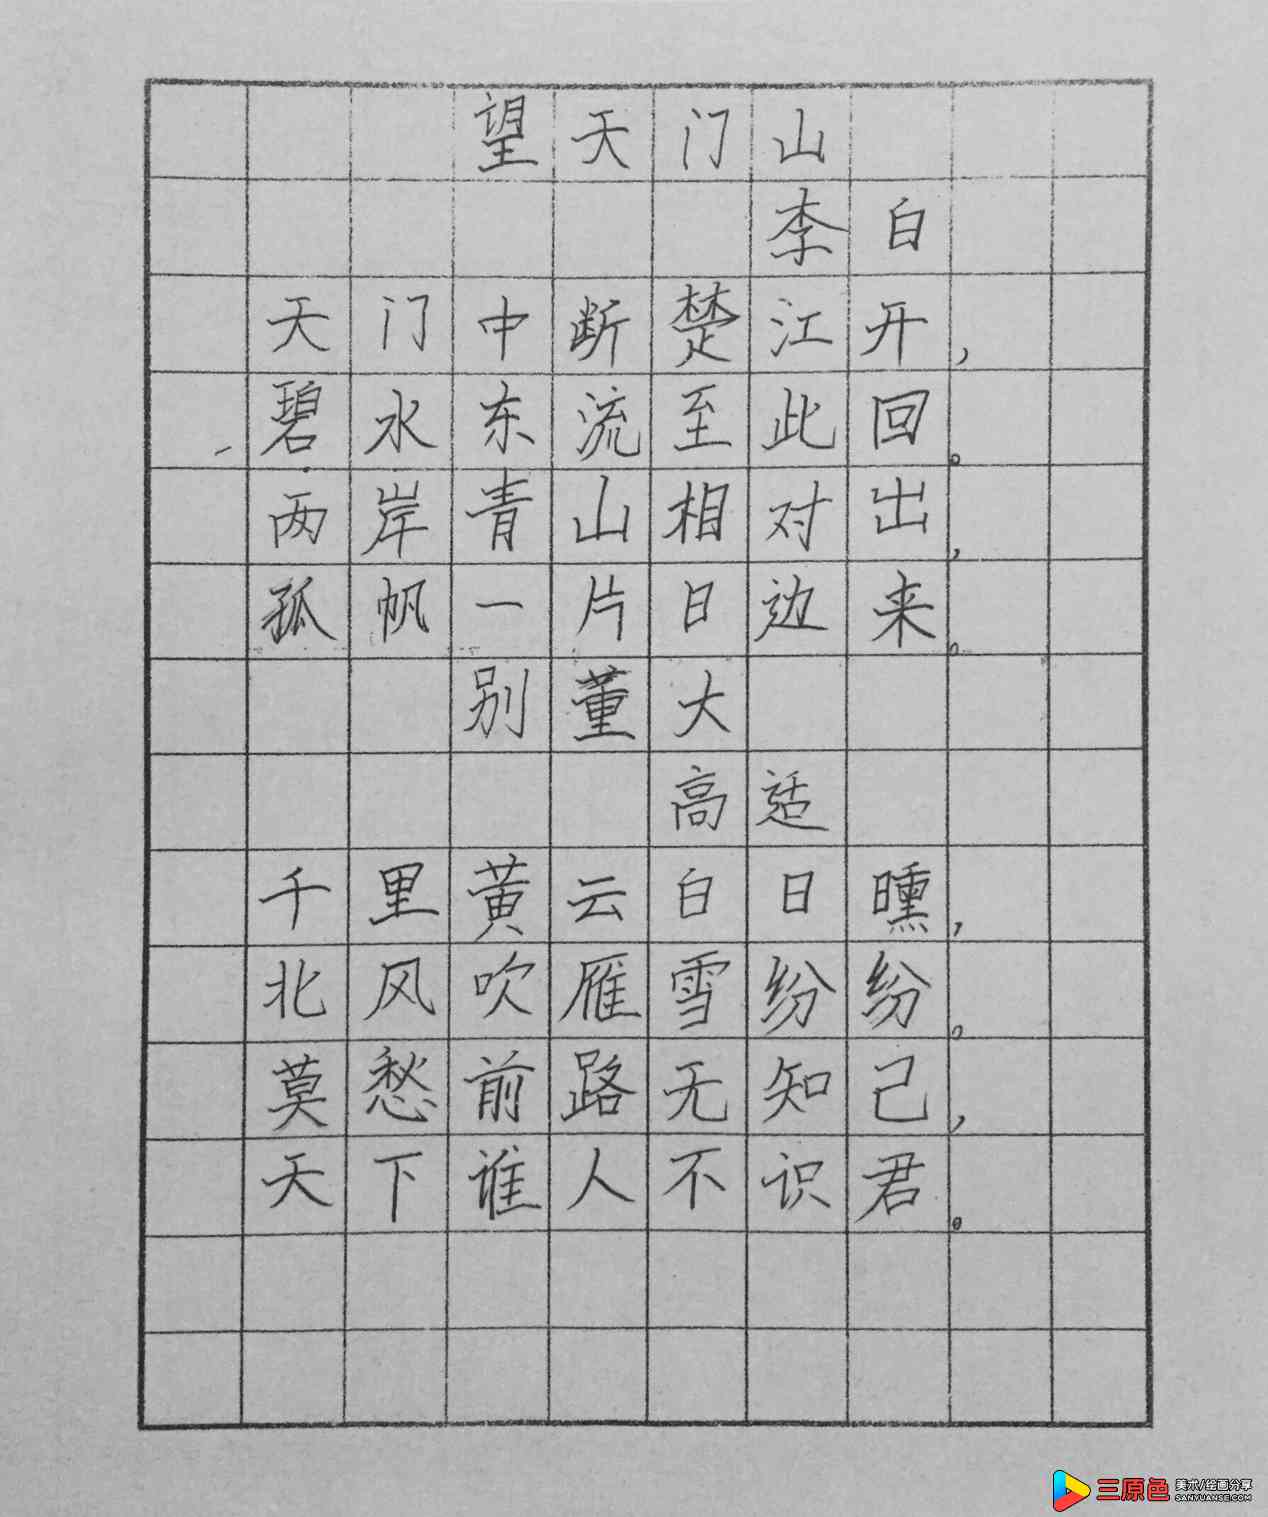 望天门山
李白
天门中断楚江开，
碧水东流至此回。
两岸青山相对出，
孤帆一片日边来。
别董大
高适
千里黄云白日曛，
北风吹雁雪纷纷。
莫愁前路无知己，
天下谁人不识君。
三原色 美术/绘画分享
SANYUANSE.COM